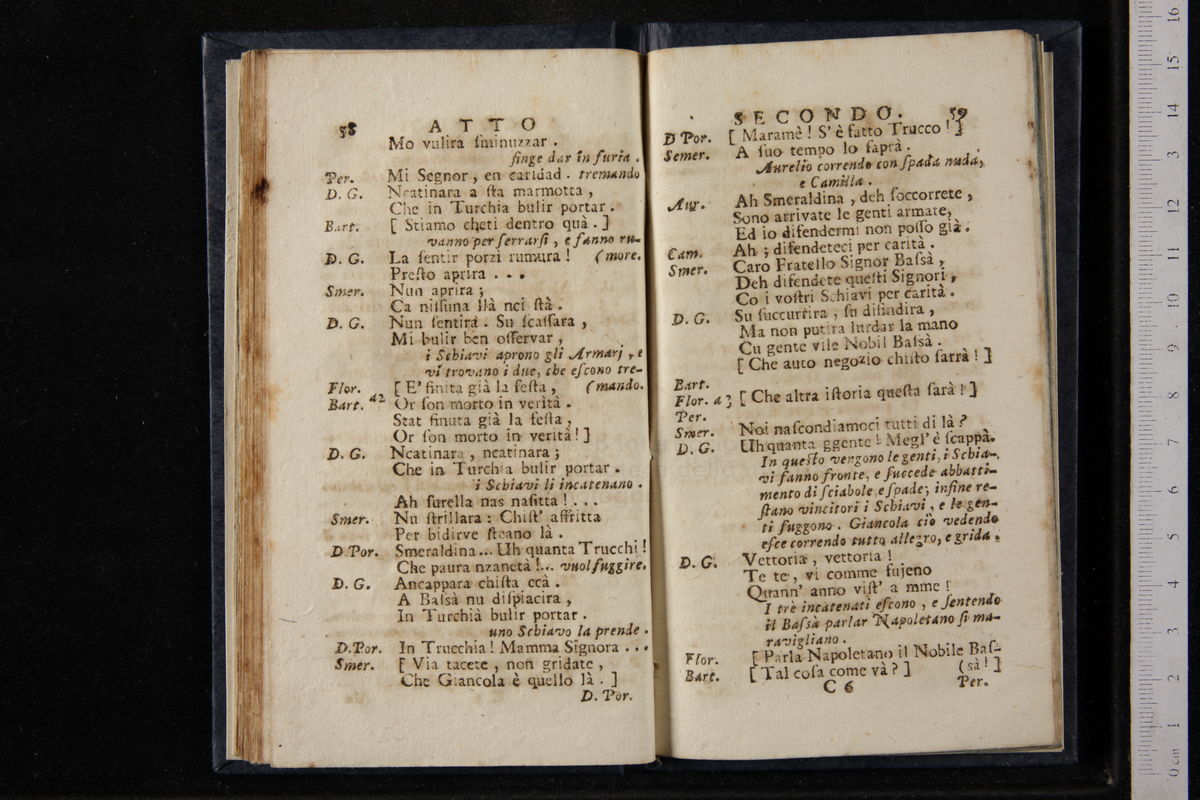 58 ATTO
Mo vulira ſminuzzar.
finge dar in furia.
Per. Mi Segnor, en caridad. tremando
D. G. Ncatinara a ſta marmotta,
Che in Turchia bulir portar.
Bart. [ Stiamo cheti dentro quà. ]
vanno per ſerrarſi, e fanno ru-
D. G. La ſentir porzì rumura! (more.
Preſto aprira ...
Smer. Nun aprira;
Ca niſſuna llà nci ſtà.
D. G. Nun ſentirà. Su ſcaſſara,
Mi bulir ben oſſervar,
i Schiavi aprono gli Armarj, e
vi trovano i due, che eſcono tre-
Flor. [ E' finita già la feſta, (mando.
Bart. a2 Or ſon morto in verità.
Stat finuta già la feſta,
Or ſon morto in verità! ]
D. G. Ncatinara, ncatinara;
Che in Turchia bulir portar.
i Schiavi li incatenano.
Ah ſurella nas naſitta! ...
Smer. Nu ſtrillara: Chiſt' affritta
Per bidirve ſteano là.
D Por. Smeraldina... Uh quanta Trucchi!
Che paura nzanetà!... vuol fuggire.
D. G. Ancappara chiſta ccà.
A Baſsà nu diſpiacira,
In Turchia bulir portar.
uno Schiavo la prende.
D. Por. In Trucchia! Mamma Signora ...
Smer. [ Via tacete, non gridate,
Che Giancola è quello là. ]
D. Por.
SECONDO. 59
D Por. [ Maramè! S' è fatto Trucco! ]
Semer. A ſuo tempo lo ſaprà.
Aurelio correndo con ſpada nuda,
e Camilla.
Aur. Ah Smeraldina, deh ſoccorrete,
Sono arrivate le genti armate,
Ed io difendermi non poſſo già.
Cam. Ah; difendeteci per carità.
Smer. Caro Fratello Signor Baſsà,
Deh difendete queſti Signori,
Co i voſtri Schiavi per carità.
D. G. Su ſuccurrira, ſu difindira,
Ma non putira lurdar la mano
Cu gente vile Nobil Baſsà.
[ Che auto negozio chiſto ſarrà! ]
Bart.
Flor. a 3 [ Che altra iſtoria queſta ſarà! ]
Per.
Smer. Noi naſcondiamoci tutti di là?
D. G. Uh quanta ggente! Megl' è ſcappà.
In queſto vengono le genti, i Schia-
vi fanno fronte, e ſuccede abbatti-
mento di ſciabole e ſpade; infine re-
ſtano vincitori i Schiavi, e le gen-
ti fuggono. Giancola ciò vedendo
eſce correndo tutto allegro, e grida.
D. G. Vettoria, vettoria!
Te te, vi comme fujeno
Quann' anno viſt' a mme!
I trè incatenati eſcono, e ſentendo
il Baſsà parlar Napoletano ſi ma-
ravigliano.
Flor. [ Parla Napoletano il Nobile Baſ-
Bart. [ Tal coſa come và? ] (sà! ]
C 6 Per.